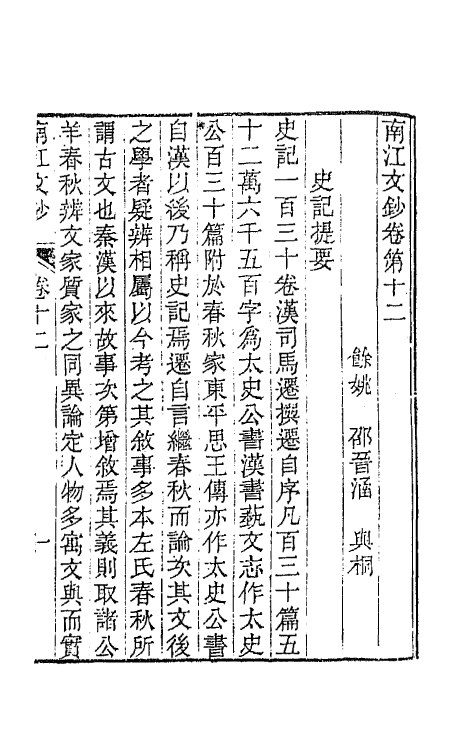 南江文鈔卷第十二
餘姚　邵晉涵　與桐
史記提要
史記一百三十卷漢司馬遷撰遷自序凡百三十篇五
十二萬六千五百字爲太史公書漢書藝文志作太史
公百三十篇附於春秋家東平思王傳亦作太史公書
自漢以後乃稱史記焉遷自言繼春秋而論次其文後
之學者疑辨相屬以今考之其敘事多本左氏春秋所
謂古文也秦漢以來故事次第增敘焉其義則取諸公
羊春秋辨文家質家之同異論定人物多寓文與而實
南江文鈔　卷十二　一